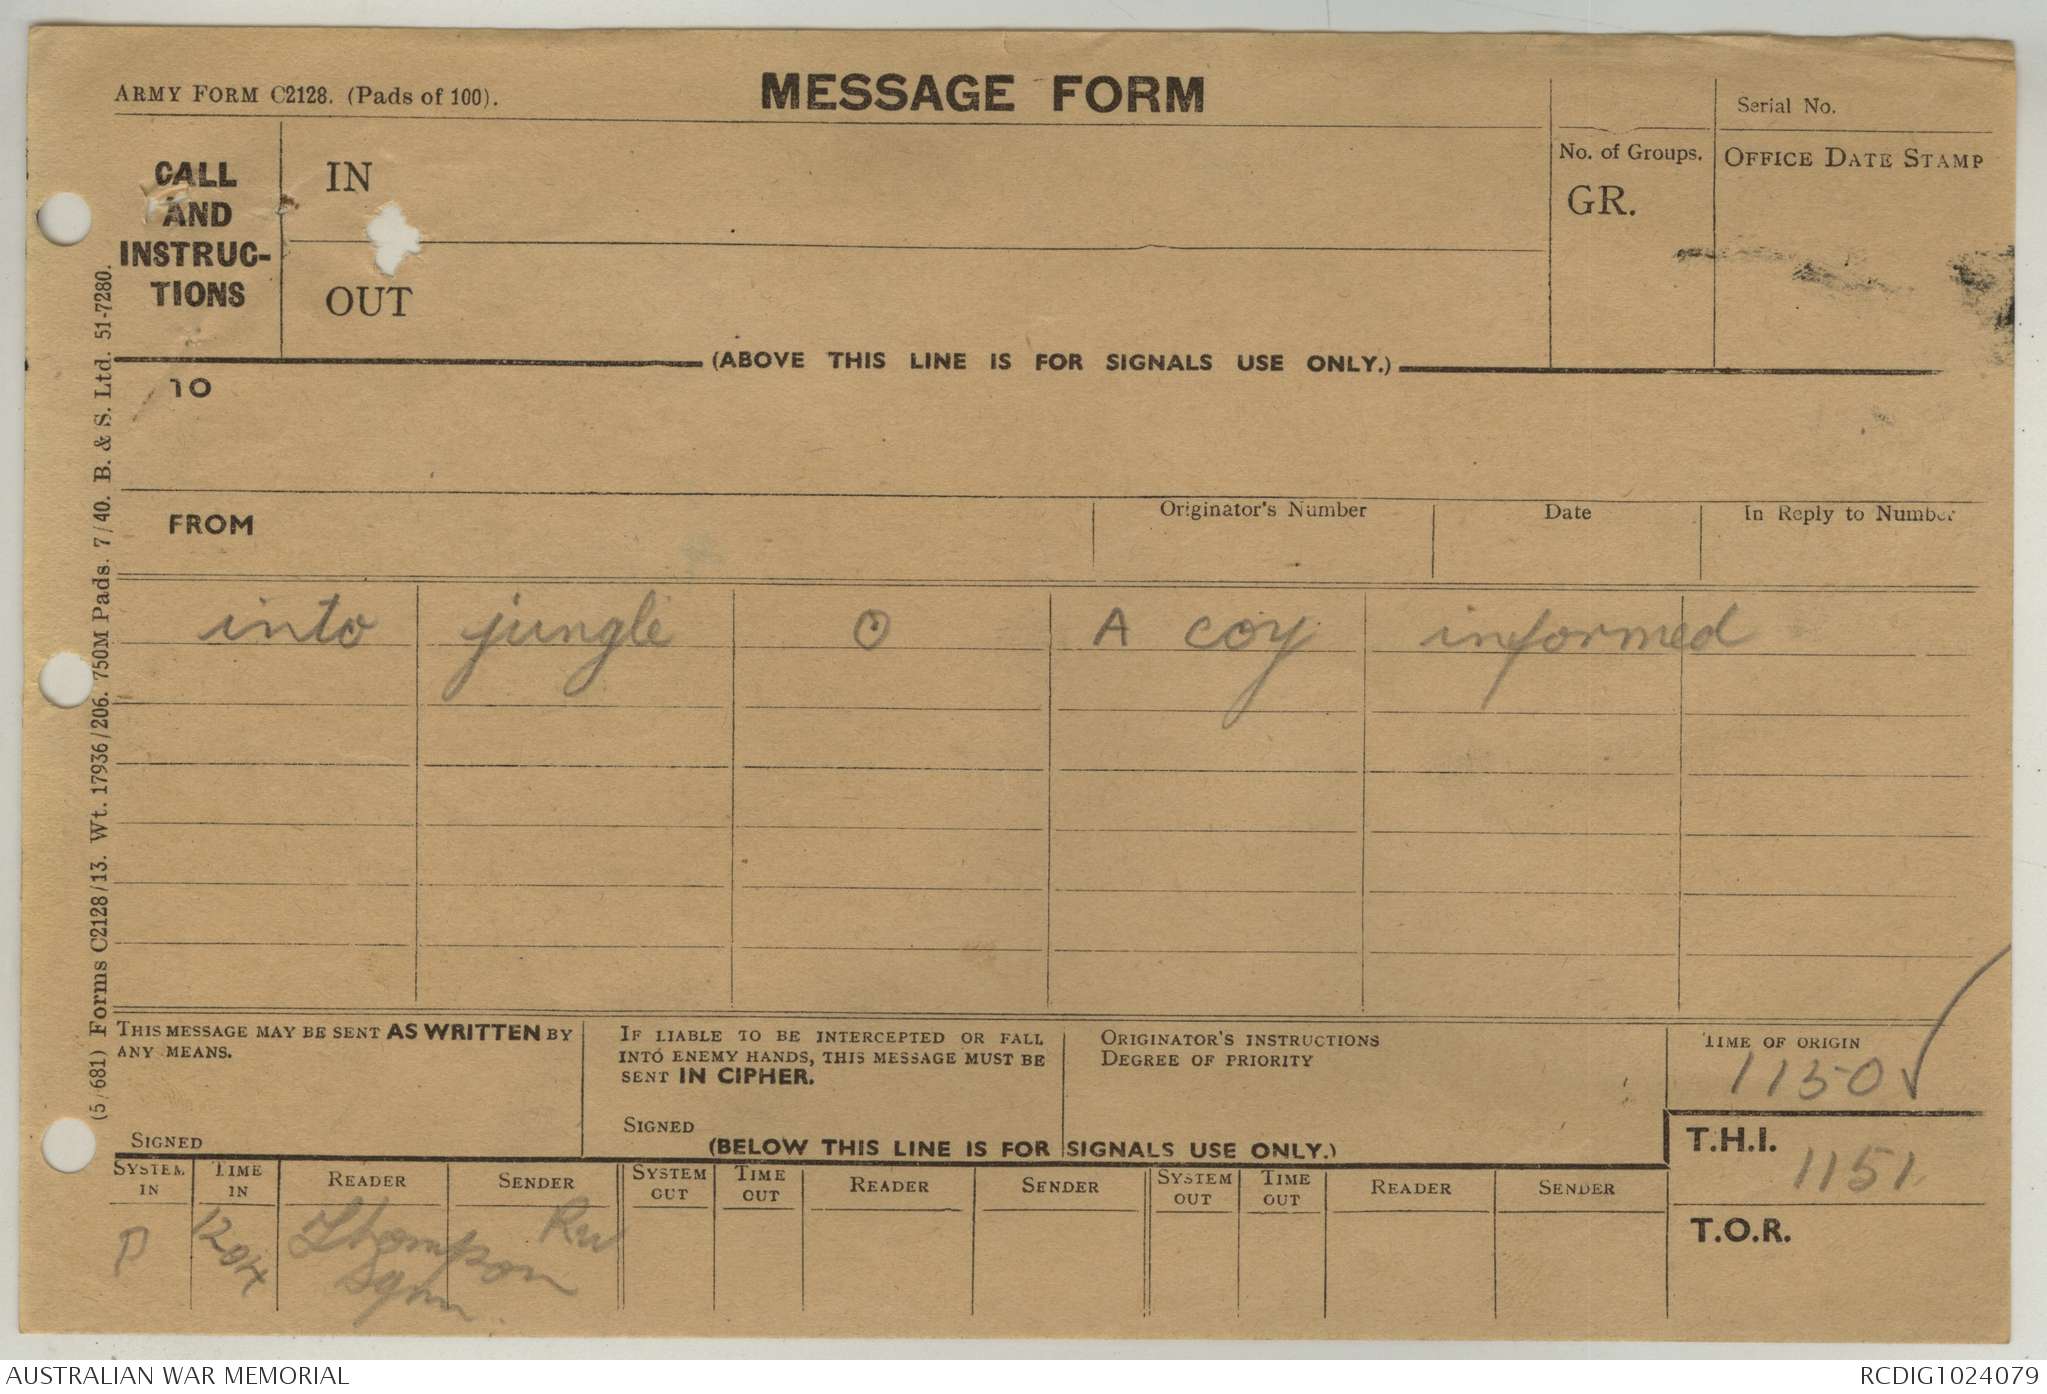 ARMY FORM C2128. (Pads of 100).
MESSAGE FORM
Serial No.
CALL
AND
INSTRUC-
TIONS
IN
OUT
No. of Groups.
GR.
OFFICE DATE STAMP
(ABOVE THIS LINE IS FOR SIGNALS USE ONLY.)
TO
FROM
Originator's Number
Date
In Reply to Number
into jungle O A coy informed
THIS MESSAGE MAY BE SENT AS WRITTEN BY
ANY MEANS.
SIGNED
IF LIABLE TO BE INTERCEPTED OR FALL
INTO ENEMY HANDS, THIS MESSAGE MUST BE
SENT IN CIPHER.
SIGNED
ORIGINATOR'S INSTRUCTIONS
DEGREE OF PRIORITY
TIME OF ORIGIN
1150
(BELOW THIS LINE IS FOR SIGNALS USE ONLY.)
T.H.I.
1151
T.O.R.
SYSTEM IN TIME IN READER SENDER SYSTEM OUT TIME OUT READER SENDER SYSTEM OUT TIME OUT READER SENDER
P 1204 Thompson Rw
Sgmn
(5/681) Forms C2128/13. Wt. 17936/206. 750M Pads. 7/40. B. & S. Ltd. 51-7280.
AUSTRALIAN WAR MEMORIAL
RCDIG1024079